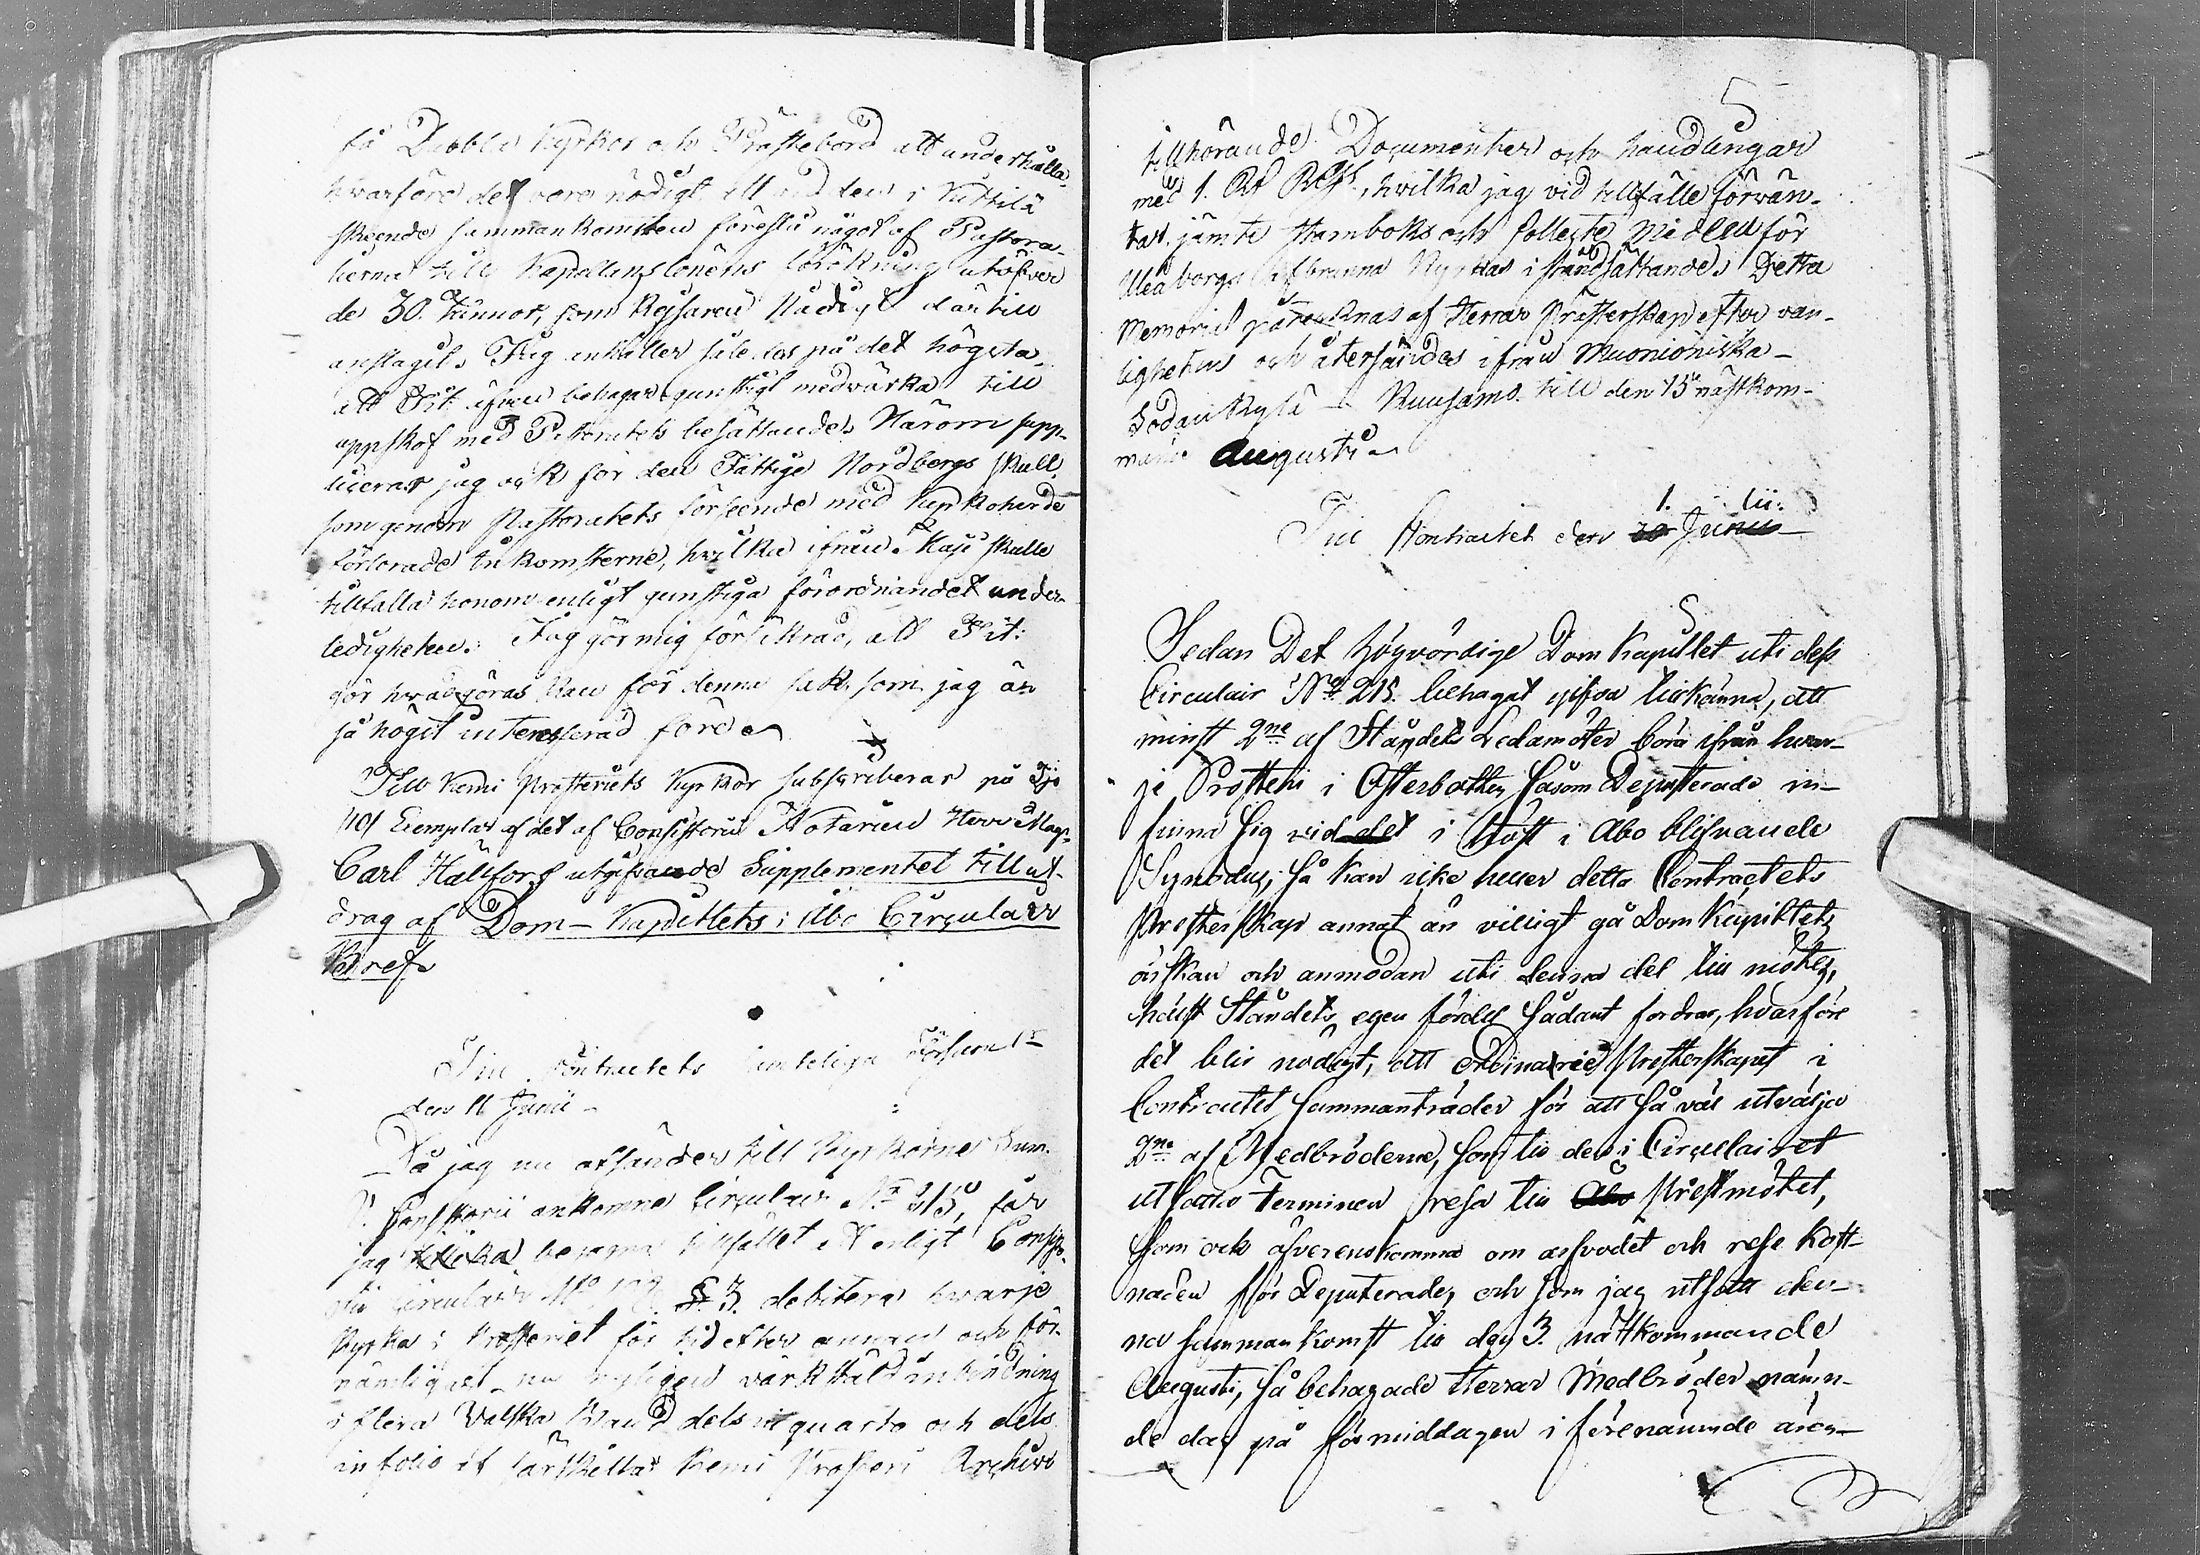 få Dubbla Kyrkor och Prästebord att underhålla,
hvarföre det vore nödigt att vid den i Kittilä
skeende sammankomsten föreslå något af Pastora-
lierna till Kapellanslönens tillökning utöfver
de 30. Tunnor, som Kejsaren Nådigt därtill
anslagit. Jag anhåller således på det högsta
att Tit: äfven behagar gunstigt medvärka till
uppskof med Pastoratets besättande. Härom supp-
licerar jag ock för den Fattige Nordbergs skull
som genom Pastoratets förseende med Kyrkoherde
förlorade inkomsterne, hvilka ifrån Maji skulle
tillfalla honom enligt gunstiga förordnandet under
ledigheten. Jag gör mig försäkrad, att Tit:
gör hvad göras kan för denna sak, som jag är
så högst interesserad före.
Till Kemi Prosteriets Kyrkor subscriberar på Tjo
/10/ Exemplar af det af Consistorii Notarien Herr Mag.
Carl Hällfors utgifvande Supplementet till ut-
drag af Dom-Kapitlets i Åbo Circulair
Bref
Till Contractets samteliga Församl:r
den 11 Junii
Då jag nu afsänder till Kyrkorne
V. Consistorii ankomne Circulair N:o 215, får
jag tillika begagna tillfället att enligt Consisto-
rii Circulair N:o § 3. debitera hvarje
Kyrka i Prosteriet för tid efter annan och för-
nämligast nu nyligen värkställd inbindning
i flera Valska Band dels in quarto och dels
in folio af särskilta Kemi Prosteri Archivo
5
tillhörande Documenter och handlingar
med 1. Rub. B:co Ass., hvilka jag vid tillfälle förvän-
tar jämte Stamboks och Collecte Medlen för
Uleåborgs afbrunna Kyrkas iståndsättande. Detta
Memorial påteknas af Herrar Prästerskap efter van-
ligheten och återsändes ifrån Muonioniska
Sodankylä Kuusamo till den 15 nästkom-
mande Augusti
Till Contractet den 1. Julii
Sedan Det Högvördige Dom Kapitlet uti dess
Circulair N:o 215. behagat gifva tillkänna, att
minst 2:ne af Ståndets Ledamöter böra ifrån hvar-
je Prosteri i Österbotten såsom Deputerade in-
finna sig vid det i höst i Åbo blifvande
Synodus, så kan icke heller detta Contractets
Presterskap annat än villigt gå Dom Kapitlets
önskan och anmodan uti denna del till mötes,
hälst Ståndets egen fördel sådant fordrar, hvarföre
det blir nödigt, att ordinarie Presterskapet i
Contractet sammanträder för att så väl utvälja
2:ne af Medbröderne, som till den i Circulairet
utsatte Terminen resa till Åbo Prestmötet,
som ock öfverenskomma om arfvodet och rese kost-
naden för Deputerade, och som jag utsatt den-
na sammankomst till den 3. nästkommande
Augusti, så behagade Herrar Medbröder nämn-
de dag på förmiddagen i förenämnde ären-